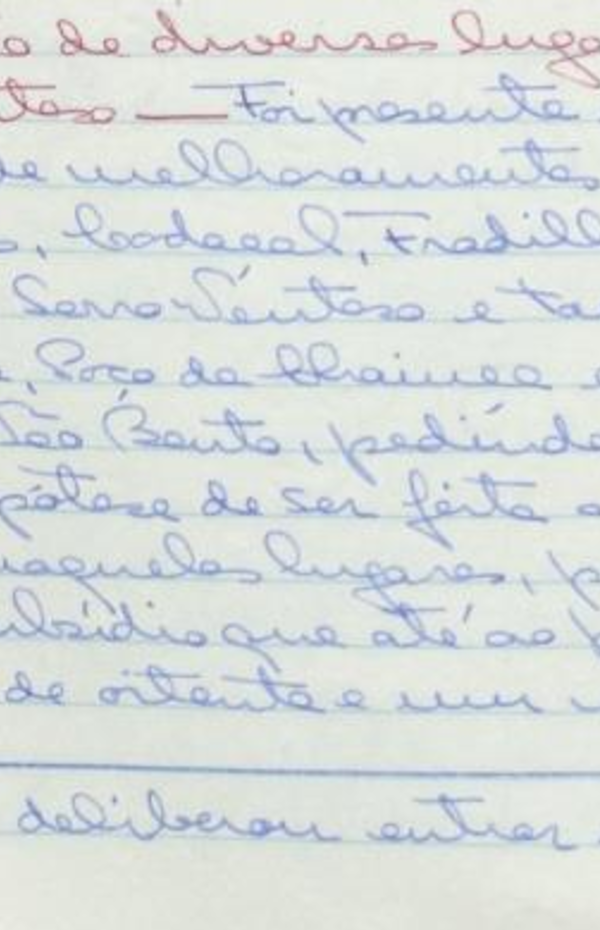 o de diversos luga
toso — Foi presente
de melhoramentos
o, Codaçal, Fradill
Serro Ventoso e ta
, Poço da Chainça e
São Bento, pedindo
pótese de ser feita a
naqueles lugares, p
ubsídio que até ao p
de oitenta e um
deliberou entrar